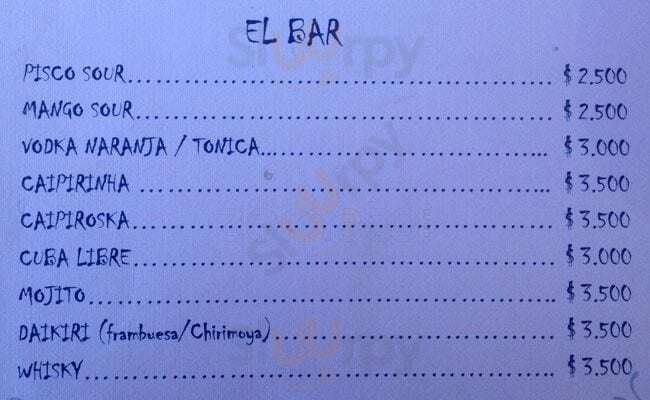 EL BAR
PISCO SOUR........................................................ $ 2.500
MANGO SOUR...................................................... $ 2.500
VODKA NARANJA / TONICA....................................... $ 3.000
CAIPIRINHA ....................................................... $ 3.500
CAIPIROSKA....................................................... $ 3.500
CUBA LIBRE....................................................... $ 3.000
MOJITO............................................................ $ 3.500
DAIKIRI (frambuesa/Chirimoya)................................... $ 3.500
WHISKY............................................................ $ 3.500